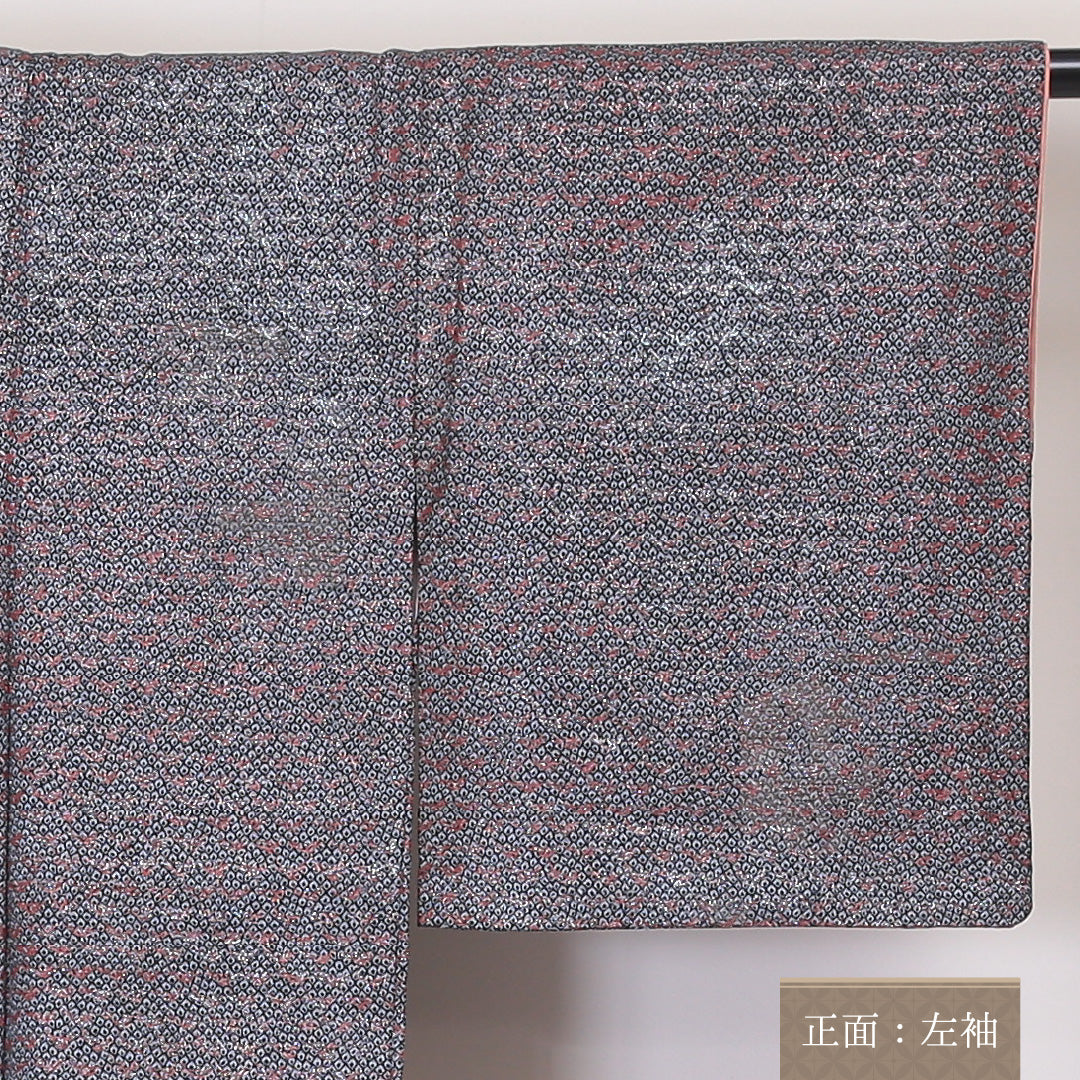 正面：左袖